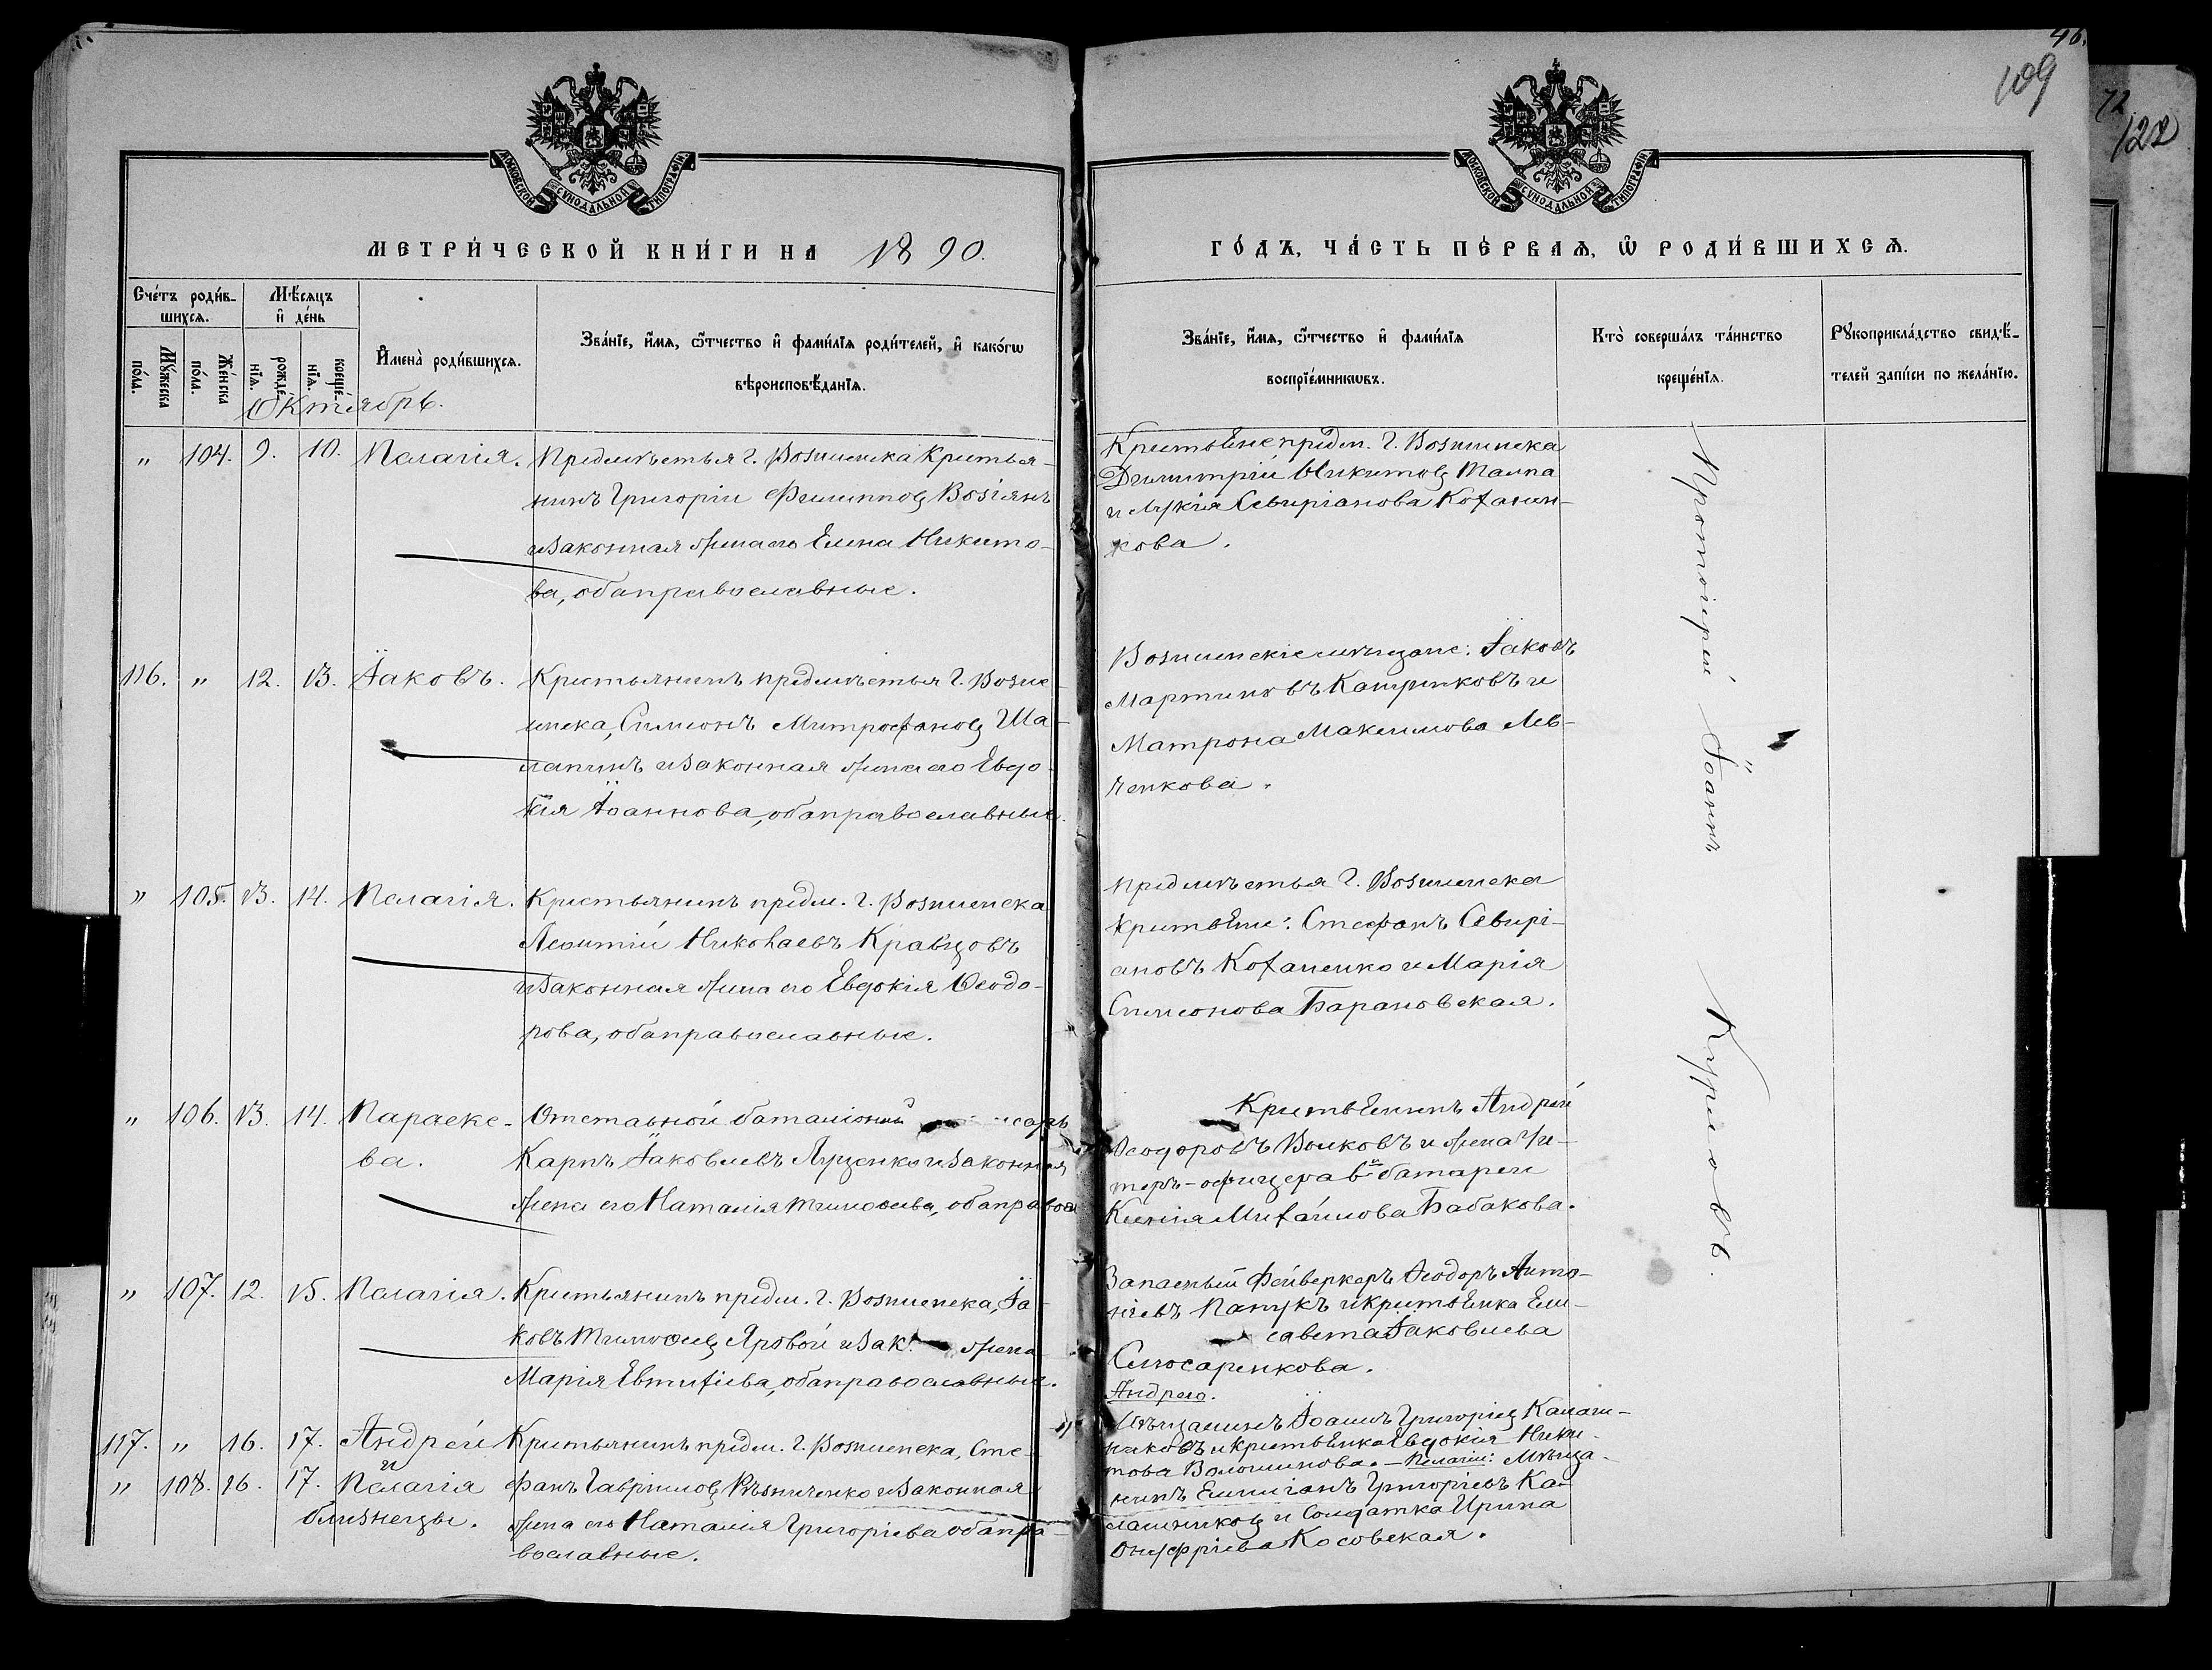 46.
109
72
122
МОСКОВСКОЙ СѴНОДАЛЬНОЙ ТИПОГРАФІИ
МОСКОВСКОЙ СѴНОДАЛЬНОЙ ТИПОГРАФІИ
МЕТРИ́ЧЕСКОЙ КНИ́ГИ НА 1890.
ГО́ДЪ, ЧА́СТЬ ПЕ́РВАѦ, Ѿ РОДИ́ВШИХСѦ.
Сче́тъ роди́в-
шихсѧ.
Мѣ́сѧцъ
и҆ де́нь
Мꙋ́жеска
по́ла.
Же́нска
по́ла.
рожде́-
нїѧ.
креще́-
нїѧ.
И҆мена̀ роди́вшихсѧ.
Зва́нїе, и҆́мѧ, ѻ҆́тчество и҆ фами́лїѧ роди́телей, и҆ како́гѡ
вѣроисповѣ́данїѧ.
Зва́нїе, и҆́мѧ, ѻ҆́тчество и҆ фами́лїѧ
воспрїе́мникѡвъ.
Кто̀ соверша́лъ та́инство
креще́нїѧ.
Рꙋкоприкла́дство свидѣ́-
телей за́писи по жела́нїю.
Октябрь.
" 104. 9. 10. Пелагія. Предмѣстья г. Вознесенска Крестья-
нинъ Григорій Филиппов Возіянъ
и законная жена его Елена Никито-
ва, оба православные.
Крестьяне предм. г. Вознесенска
Димитрій Никитов Таипа
и Лукія Севиріанова Коханен-
кова.
116. " 12. 13. Іаковъ. Крестьянинъ предмѣстья г. Возне-
сенска, Симеонъ Митрофанов Ша-
лапинъ и законная жена его Евдо-
кія Іоаннова, оба православные.
Вознесенскіе мѣщане: Іаковъ
Мартиновъ Кащенковъ и
Матрона Максимова Лев-
ченкова.
" 105. 13. 14. Пелагія. Крестьянинъ предм. г. Вознесенска
Леонтій Николаевъ Кравцовъ
и законная жена его Евдокія Ѳеодо-
рова, оба православные.
Предмѣстья г. Вознесенска
крестьяне: Стефанъ Севирі-
ановъ Коханенко и Марія
Симеонова Барановская.
" 106. 13. 14. Параске-
ва.
Отставной баталіонный
Карпъ Іаковлевъ Луценко и законная
жена его Наталія Тимоѳеева, оба правосл
Крестьянинъ Андрей
Ѳеодоровъ Волковъ и жена Ун-
теръ-офицера 6й батареи
Ксенія Михаилова Бабакова.
" 107. 12. 15. Пелагія. Крестьянинъ предм. г. Вознесенска, Іа-
ковъ Тимоѳеев Яровой и зак. жена
Марія Евтихіева, оба православные.
Запасный Фейверкеръ Ѳеодоръ Анто-
ніевъ Папукъ и крестьянка Ели-
савета Іаковлева
Слюсаренкова.
117. " 16. 17. Андрей
и
" 108. 16. 17. Пелагія
близнецы.
Крестьянинъ предм. г. Вознесенска, Сте-
фанъ Гавриилов Рѣзниченко и законная
жена его Наталія Григоріева оба пра-
вославные.
Андрея.
Мѣщанинъ Іоаннъ Григоріев Калаш-
никовъ и крестьянка Евдокія Ники-
това Волошинова. — Пелагіи: Мѣща-
нинъ Емиліанъ Григоріевъ Ка-
лашников и Солдатка Ирина
Онуфріева Косовская.
Протоіерей Іоаннъ Куриловъ.